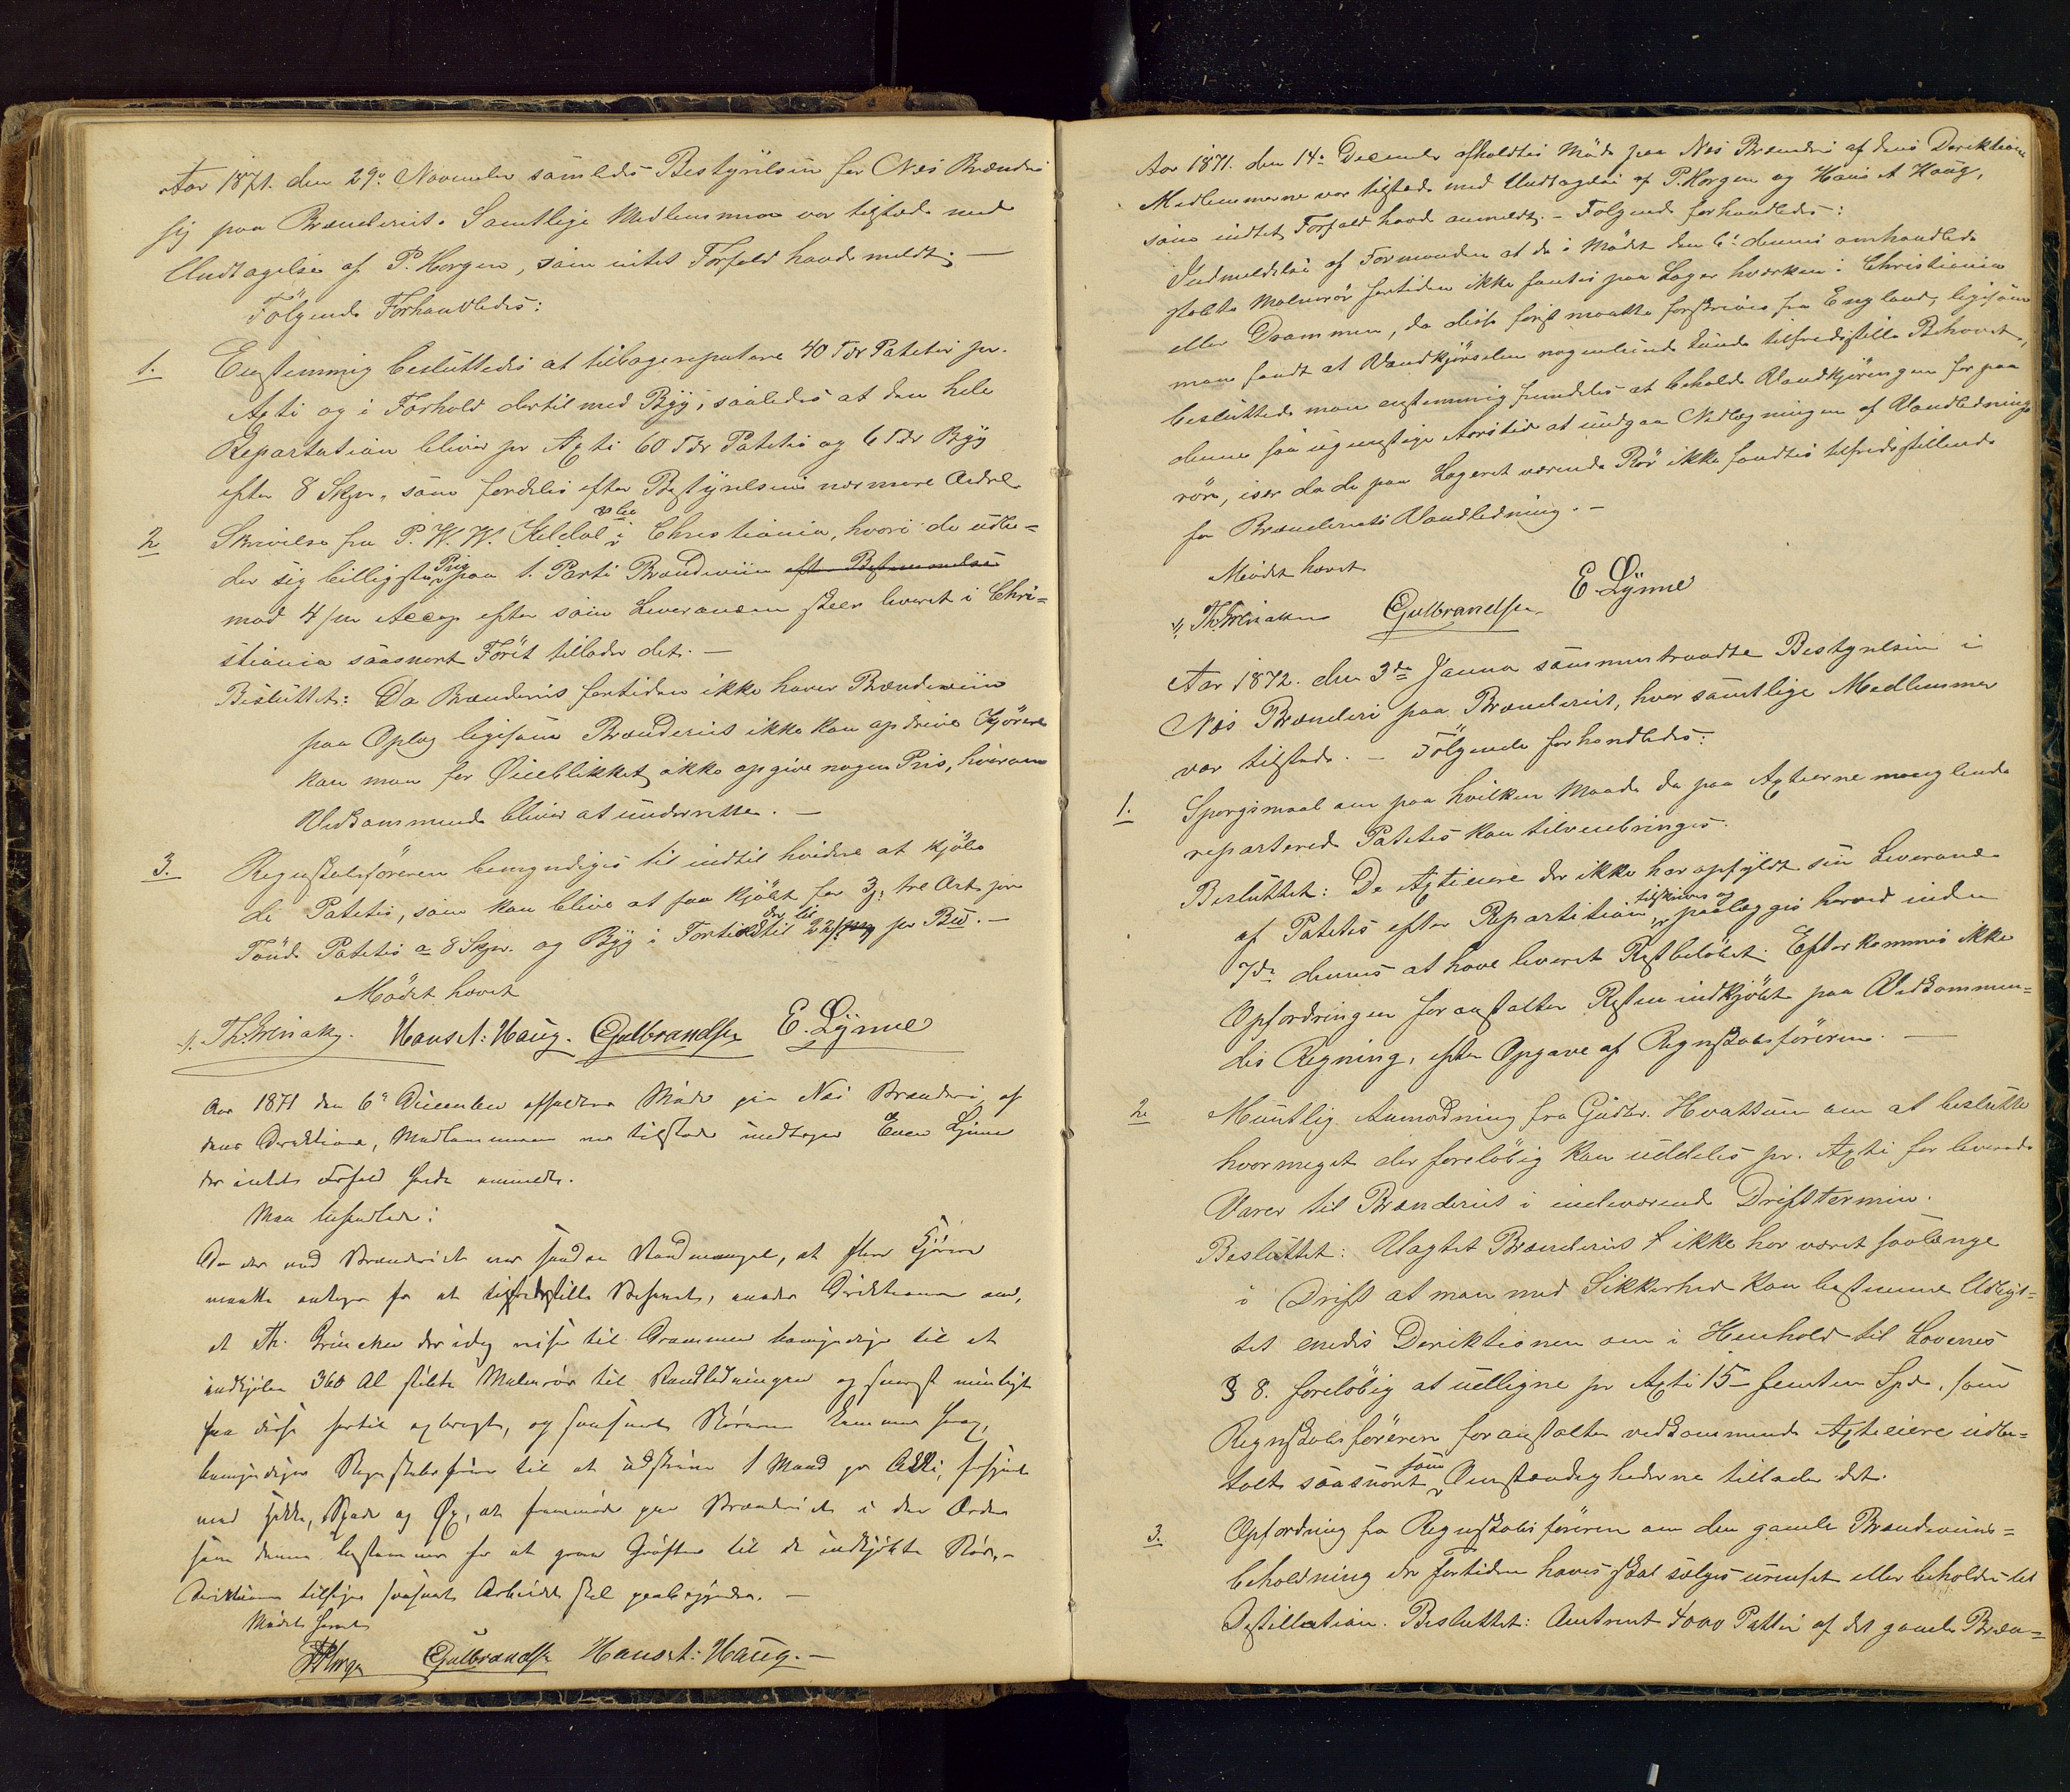 Aar 1871. den 29de November samledes Bestyrelsen for Næs Brænderi
sig paa Brænderiet. Samtlige Medlemmer var tilstæde med
Undtagelse af P. Horgen, som intet Forfald havde meldt; —
Følgende Forhandledes:
1. Enstemmig besluttedes at tilbagerepatere 40 Tdr Patetes pr.
Axti og i Forhold dertil med Byg, saaledes at den hele
Repartation bliver pr Axti 60 Tdr Patetes og 6 Tdr Byg
efter 8 Skpr, som fordeles efter Bestyrelsens nærmere Ordre
2 Skrivelse fra P. W. W. Kildal & Co i Christiania, hvori de udbe=
der sig billigste Pris paa 1. Parti Brændeviin efter Bestemmelse
mod 4/m Accep efter som Leverancen skeer leveret i Chri=
stiania saasnart Föret tillader det. —
Besluttet: Da Brænderiet fortiden ikke haver Brændeviin
paa Oplag ligesom Brænderiet ikke kan opdrive Kjörere
kan man for Øieblikket ikke opgive nogen Pris, hvorom
Vedkommende bliver at underrette. —
3. Regnskabsföreren bemyndiges til indtil hvidere at kjöbe
de Patetes, som kan blive at faa kjöbt for 3 tre Ort pr
Tönde Patetes a 8 Skpr. og Byg i Forhold der til pr
Mödet hævet
Hans A: Haug. Gulbrandsen E. Lynne
Aar 1871 den 6te December afholdtes Möde paa Næs Brænderi af
dens Direktion, Medlemmerne var tilstede undtagen Even Lynne
der intet Forfald havde anmeldt.
Man behandlede:
Da der ved Brænderiet var saadan Vandmangel, at flere Kjörere
maatte antages for at tilfredsstille Behovet, enedes Direktionen om,
at Th. der idag reiser til Drammen bemyndiges til at
indkjöbe 360 Al stöbte Malmrör til Vandledningen og snarest muligt
faa disse hertil opbragt, og saasnart Rörene kommer frem,
bemyndiges Regnskabsförer til at udskrive 1 Mand pr Axti, forsynet
med Hakke, Spade og Øx, at fremmöde paa Brænderiet i den Orden
som denne bestemmer for at grave Gröften til de indkjöbte Rör. —
Direktionen tilsiges saasnart Arbeidet skal paabegyndes. —
Mödet hævet
PHorgen Gulbrandsen Hans A: Haug. —
Aar 1871. den 14de December afholdtes Möde paa Næs Brænderi af dens Derektion
Medlemmerne var tilstede med Undtagelse af P. Horgen og Hans A Haug,
som indtet Forfald havde anmeldt. — Folgende forhandledes:
Indmeldelse af Formanden at de i Mödet den 6te dennes omhandlede
stöbte Malmrör fortiden ikke fantes paa Lager hværken i Christiania
eller Drammen, da disse först maatte forskrives fra England, ligesom
man fandt at Vandkjörselen nogenlunde kunde tilfredsstille Behovet,
besluttede man enstemmig fremdeles at beholde Vandkjöringen for paa
denne saa ugunstige Aarstid at undgaa Nedlægningen af Vandlednings
rör, især da de paa Lageret værende Rör ikke fandtes tilfredsstillende
for Brænderiets Vandledning. —
Mödet hævet
Gulbrandsen E. Lynne
Aar 1872. den 3die Januar sammentraadte Bestyrelsen i
Næs Brænderi paa Brænderiet, hvor samtlige Medlemmer
var tilstede. — Fölgende forhandledes:
1. Spørgsmaal om paa hvilken Maade de paa Axterne manglende
reparterede Patetes kan tilveiebringes.
Besluttet: De Axtieiere der ikke har opfyldt sin Leverance
af Patetes efter Repartition tilskrives og paalægges herved inden
7de dennes at have leveret Restbelöbet. Efterkommes ikke
Opfordringen foranstaltes Resten indkjöbt paa Vedkommen=
des Regning, efter Opgave af Regnskabsföreren. —
2 Muntlig Anmodning fra Gudbr. Hvattum om at beslutte
hvormeget der foreløbig kan uddeles pr. Axti for leverede
Varer til Brænderiet i indeværende Driftstermin.
Besluttet: Uagtet Brænderiet ikke har været saalænge
i Drift at man med Sikkerhed kan bestemme Udbyt=
tet enedes Derektionen om i Henhold til Lovenes
§ 8. forelöbig at udligne pr Axti 15 — femten Spd. som
Regnskabsföreren foranstalter vedkommende Axtieiere udbe=
talt saasnart som Omstændighederne tillader det.
3. Opfordring fra Regnskabsföreren om den gamle Brændeviins=
beholdning der fortiden haves skal sælges urenset eller beholdes til
Destillation. Besluttet: Omtrent 4000 Potter af det gamle Bræn=